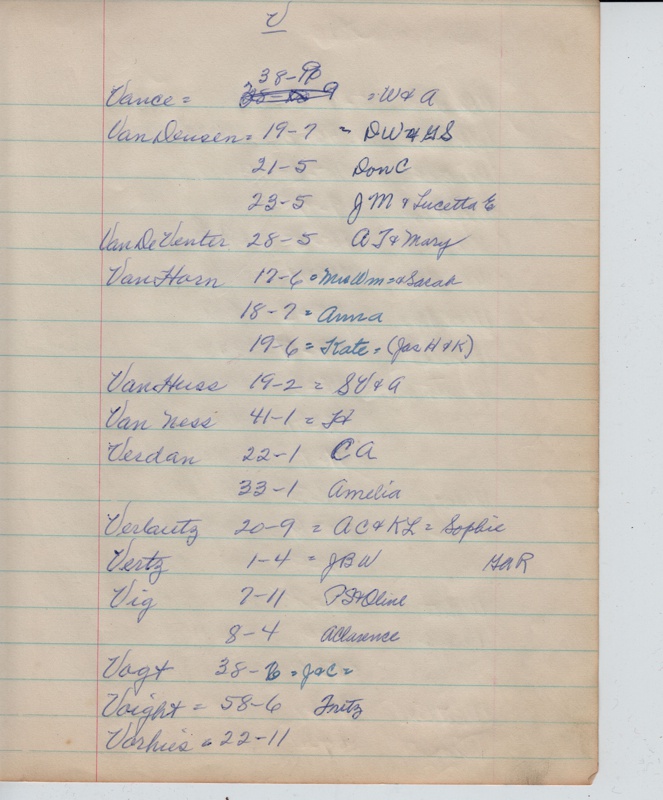 V
38-
Vance = = W & A
VanDeusen = 19-7 = DW & GS
21-5 Don C
23-5 J M & Lucetta E
VanDeVenter 28-5 A J & Mary
VanHorn 17-6 = Mrs Wm = & Sarah
18-7 = Anna
19-6 = Kate = (Jas H & K)
VanHuss 19-2 = S V & A
Van Ness 41-1 =
Verdan 22-1 C A
33-1 Amelia
20-9 = A C & K L = Sophie
Vertz 1-4 = J B W GAR
Vig 7-11 & Oline
8-4
Vogt 38- = J & C =
Voight = 58-6 Fritz
Vorhies = 22-11